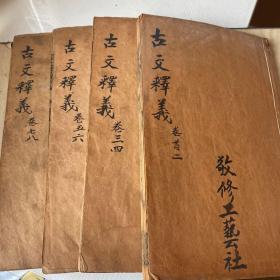 古文釋義
卷首二
敬修工藝社
古文釋義
卷三四
古文釋義
卷五六
古文釋義
卷七八